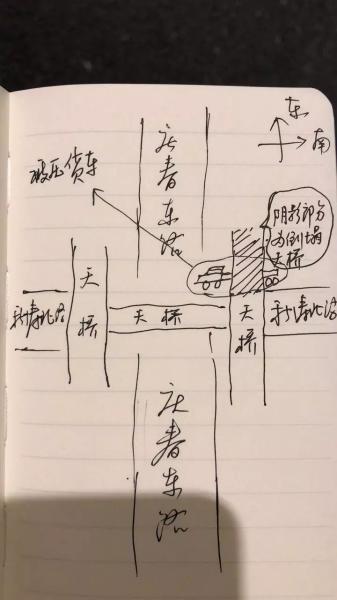 东
南
被压货车
庆春东路
阴影部分
为倒塌
天桥
天桥
新塘北路
天桥
天桥
新塘北路
庆春东路